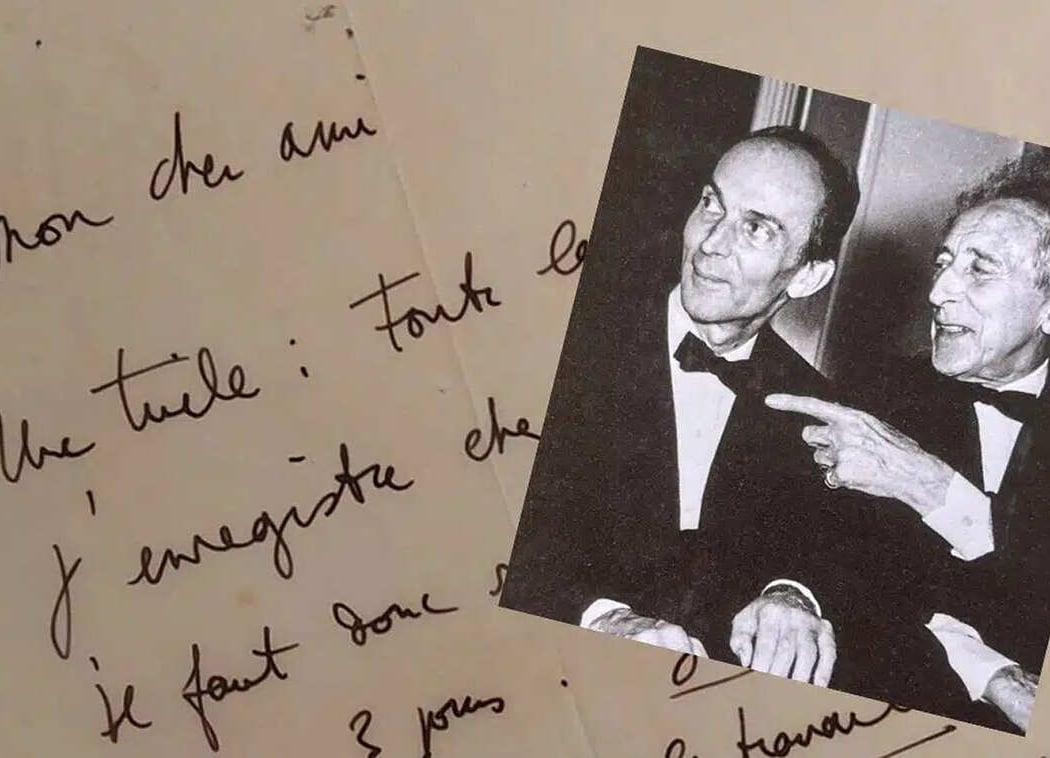 mon cher ami
Une tuile : Toute le
j'enregistre che
je faut donc
3 jours .
travail